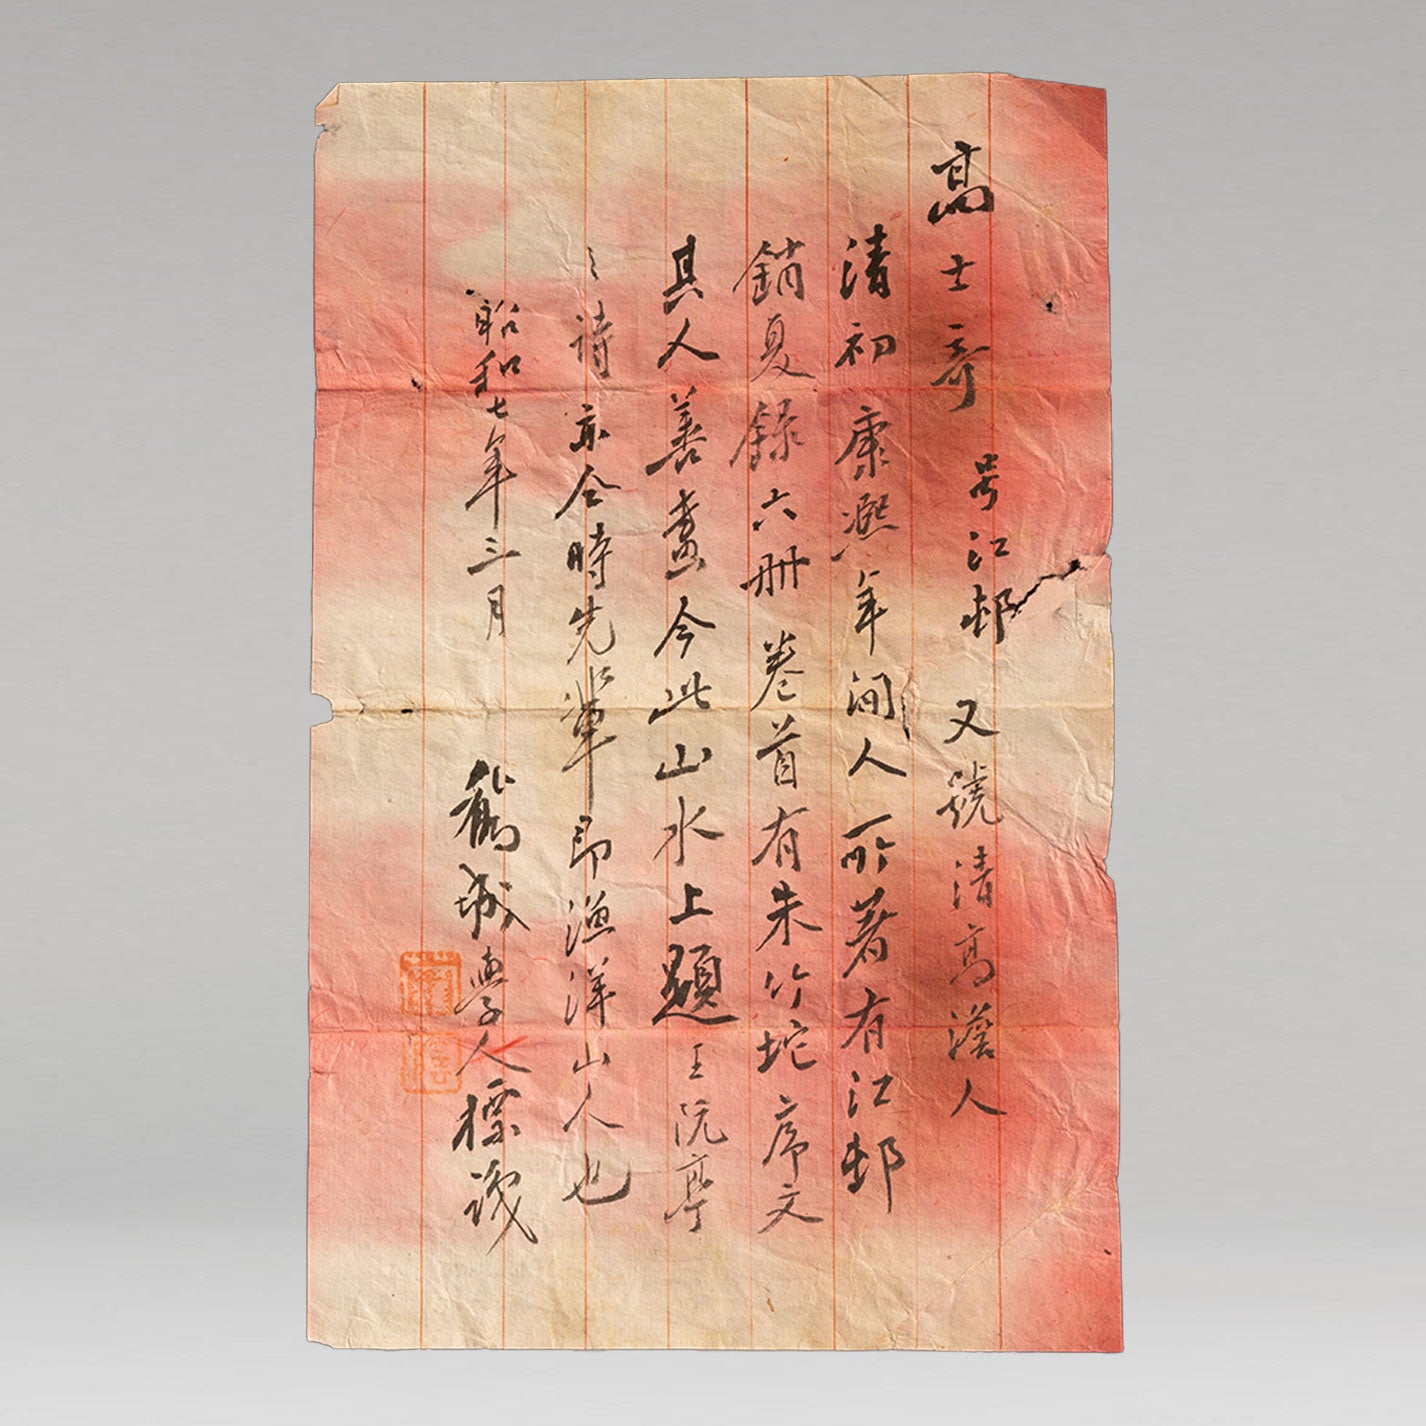 高士奇 号江邨 又號清高澹人
清初康熙年間人所著有江邨
銷夏錄六册 卷首有朱竹垞序文
其人善畫今此山水上題王阮亭
之詩亦仝時先輩即漁洋山人也
昭和七年三月 城學人標識